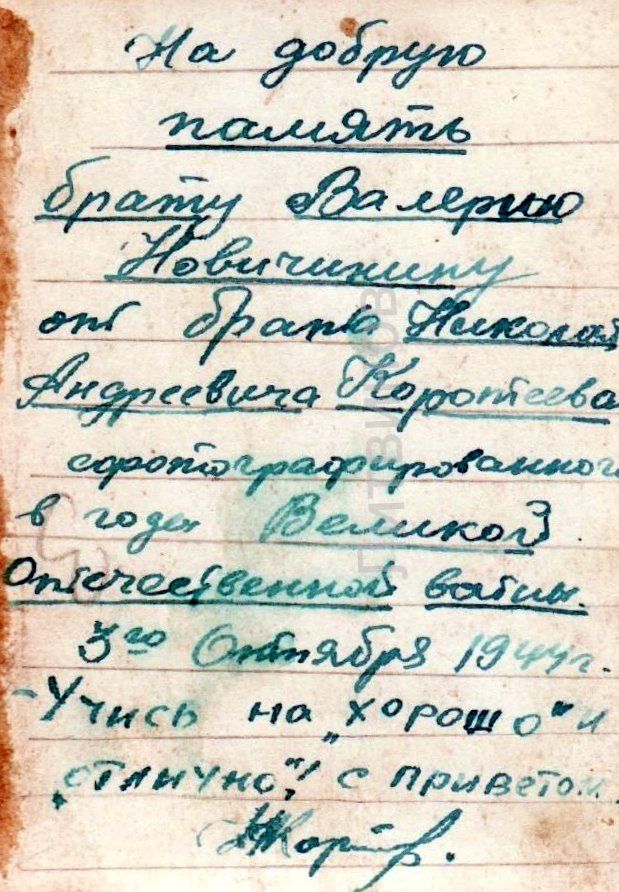 На добрую
память
брату Валерию
Новичихину
от брата Николая
Андреевича Коротеева
сфотографированного
в годы Великой
Отечественной войны.
3го Октября 1944г.
- Учись на „хорошо" и
„отлично"! с приветом
ЛИТВИНОВ